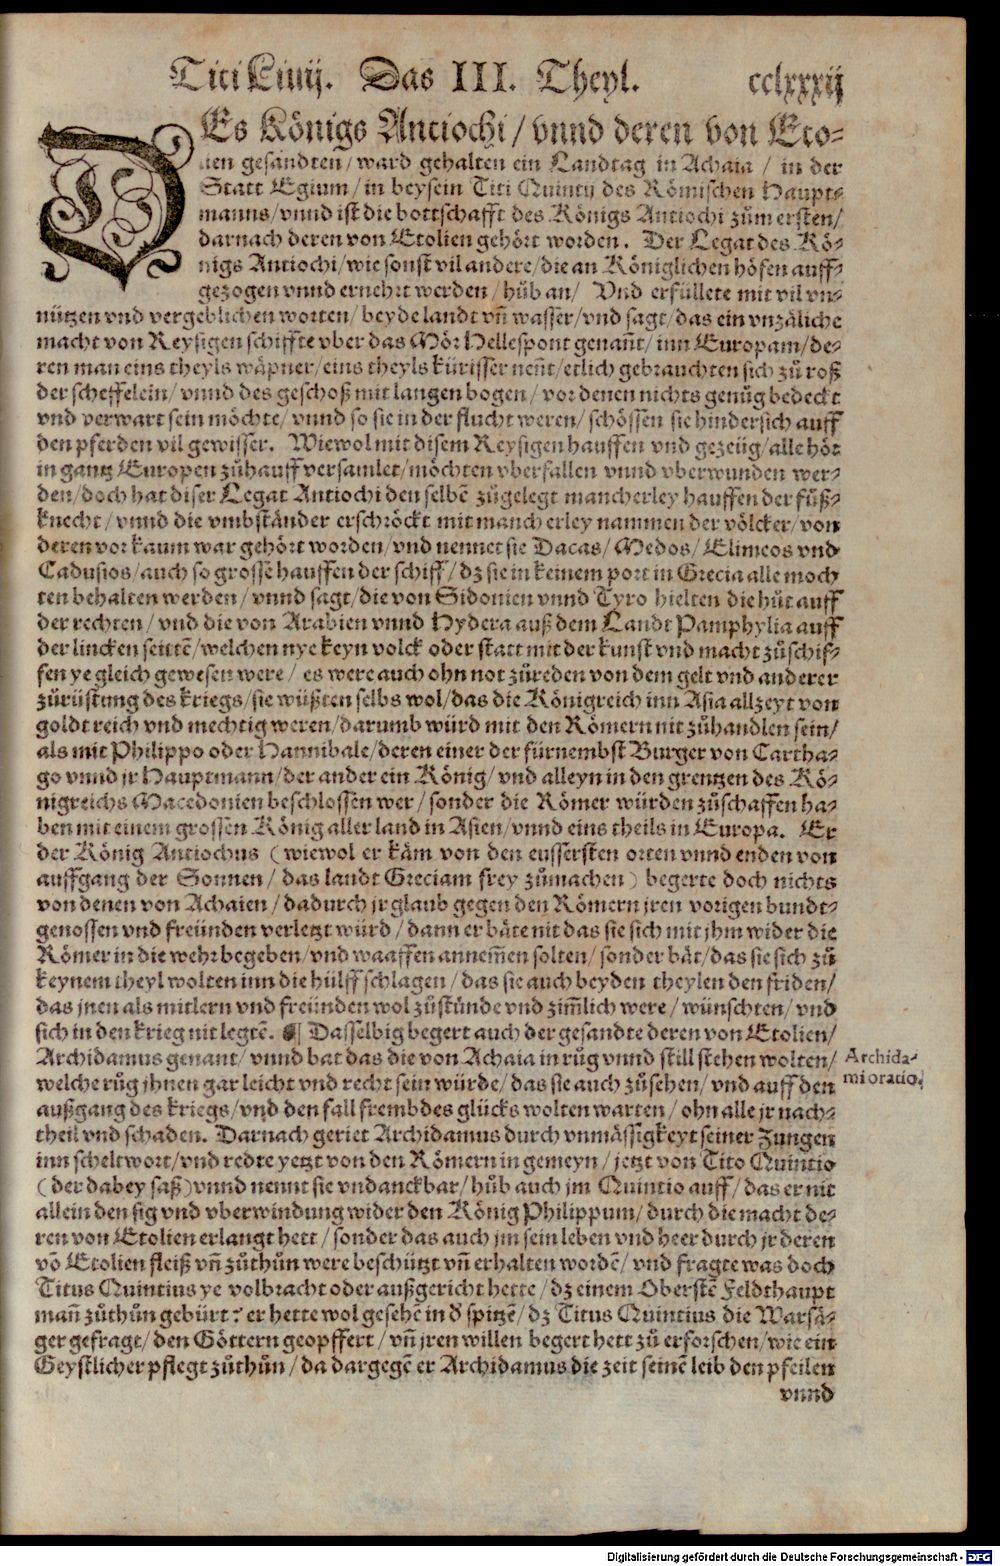 Titi Liuij. Das III. Theyl. cclxxxij
DEs Königs Antiochi / vnnd deren von Eto-
lien gesandten / ward gehalten ein Landtag in Achaia / in der
Statt Egium / in beysein Titi Quintij des Römischen Haupt-
manns / vnnd ist die bottschafft des Königs Antiochi zům ersten /
darnach deren von Etolien gehört worden. Der Legat des Kö-
nigs Antiochi / wie sonst vil andere / die an Königlichen höfen auff-
gezogen vnnd ernehrt werden / hůb an / Vnd erfüllete mit vil vn-
nützen vnd vergeblichen worten / beyde landt vñ wasser / vnd sagt / das ein vnzäliche
macht von Reysigen schiffte vber das Mör Hellespont genañt / inn Europam / de-
ren man eins theyls wäpner / eins theyls kürisser neñt / etlich gebrauchten sich zů roß
der scheffelein / vnnd des geschoß mit langen bogen / vor denen nichts genůg bedeckt
vnd verwart sein möchte / vnnd so sie in der flucht weren / schössen sie hindersich auff
den pferden vil gewisser. Wiewol mit disem Reysigen hauffen vnd gezeüg / alle hör
in gantz Europen zůhauff versamlet / möchten vberfallen vnnd vberwunden wer-
den / doch hat diser Legat Antiochi den selbẽ zůgelegt mancherley hauffen der fůß-
knecht / vnnd die vmbständer erschröckt mit mancherley nammen der völcker / von
deren vor kaum war gehört worden / vnd nennet sie Dacas / Medos / Elimeos vnd
Cadusios / auch so grosse hauffen der schiff / dz sie in keinem port in Grecia alle moch
ten behalten werden / vnnd sagt / die von Sidonien vnnd Tyro hielten die hůt auff
der rechten / vnd die von Arabien vnnd Hydera auß dem Landt Pamphylia auff
der lincken seittẽ / welchen nye keyn volck oder statt mit der kunst vnd macht zůschif-
fen ye gleich gewesen were / es were auch ohn not zůreden von dem gelt vnd anderer
zůrüstung des kriegs / sie wüßten selbs wol / das die Königreich inn Asia allzeyt von
goldt reich vnd mechtig weren / darumb würd mit den Römern nit zůhandlen sein /
als mit Philippo oder Hannibale / deren einer der fürnembst Burger von Cartha-
go vnnd jr Hauptmann / der ander ein König / vnd alleyn in den grentzen des Kö-
nigreichs Macedonien beschlossen wer / sonder die Römer würden zůschaffen ha-
ben mit einem grossen König aller land in Asien / vnnd eins theils in Europa. Er
der König Antiochus ( wiewol er käm von den eussersten orten vnnd enden von
auffgang der Sonnen / das landt Greciam frey zůmachen ) begerte doch nichts
von denen von Achaien / dadurch jr glaub gegen den Römern jren vorigen bundt-
genossen vnd freünden verletzt würd / dann er bäte nit das sie sich mit jhm wider die
Römer in die wehr begeben / vnd waaffen annem̃en solten / sonder bät / das sie sich zů
keynem theyl wolten inn die hülff schlagen / das sie auch beyden theylen den friden /
das jnen als mitlern vnd freünden wol zůstünde vnd zim̃lich were / wünschten / vnd
sich in den krieg nit legtẽ. ¶ Dasselbig begert auch der gesandte deren von Etolien /
Archidamus genant / vnnd bat das die von Achaia in růg vnnd still stehen wolten /
Archida-
mi oratio.
welche růg jhnen gar leicht vnd recht sein würde / das sie auch zůsehen / vnd auff den
außgang des kriegs / vnd den fall frembdes glücks wolten warten / ohn alle jr nach-
theil vnd schaden. Darnach geriet Archidamus durch vnmässigkeyt seiner Zungen
inn scheltwort / vnd redte yetzt von den Römern in gemeyn / jetzt von Tito Quintio
( der dabey saß ) vnnd nennt sie vndanckbar / hůb auch jm Quintio auff / das er nit
allein den sig vnd vberwindung wider den König Philippum / durch die macht de-
ren von Etolien erlangt hett / sonder das auch jm sein leben vnd heer durch jr deren
võ Etolien fleiß vñ zůthůn were beschützt vñ erhalten wordẽ / vnd fragte was doch
Titus Quintius ye volbracht oder außgericht hette / dz einem Oberstẽ Feldthaupt
mañ zůthůn gebürt? er hette wol gesehẽ in d̓ spitzẽ / dz Titus Quintius die Warsä-
ger gefragt / den Göttern geopffert / vñ jren willen begert hett zů erforschen / wie ein
Geystlicher pflegt zůthůn / da dargegẽ er Archidamus die zeit seinẽ leib den pfeilen
vnnd
Digitalisierung gefördert durch die Deutsche Forschungsgemeinschaft - DFG